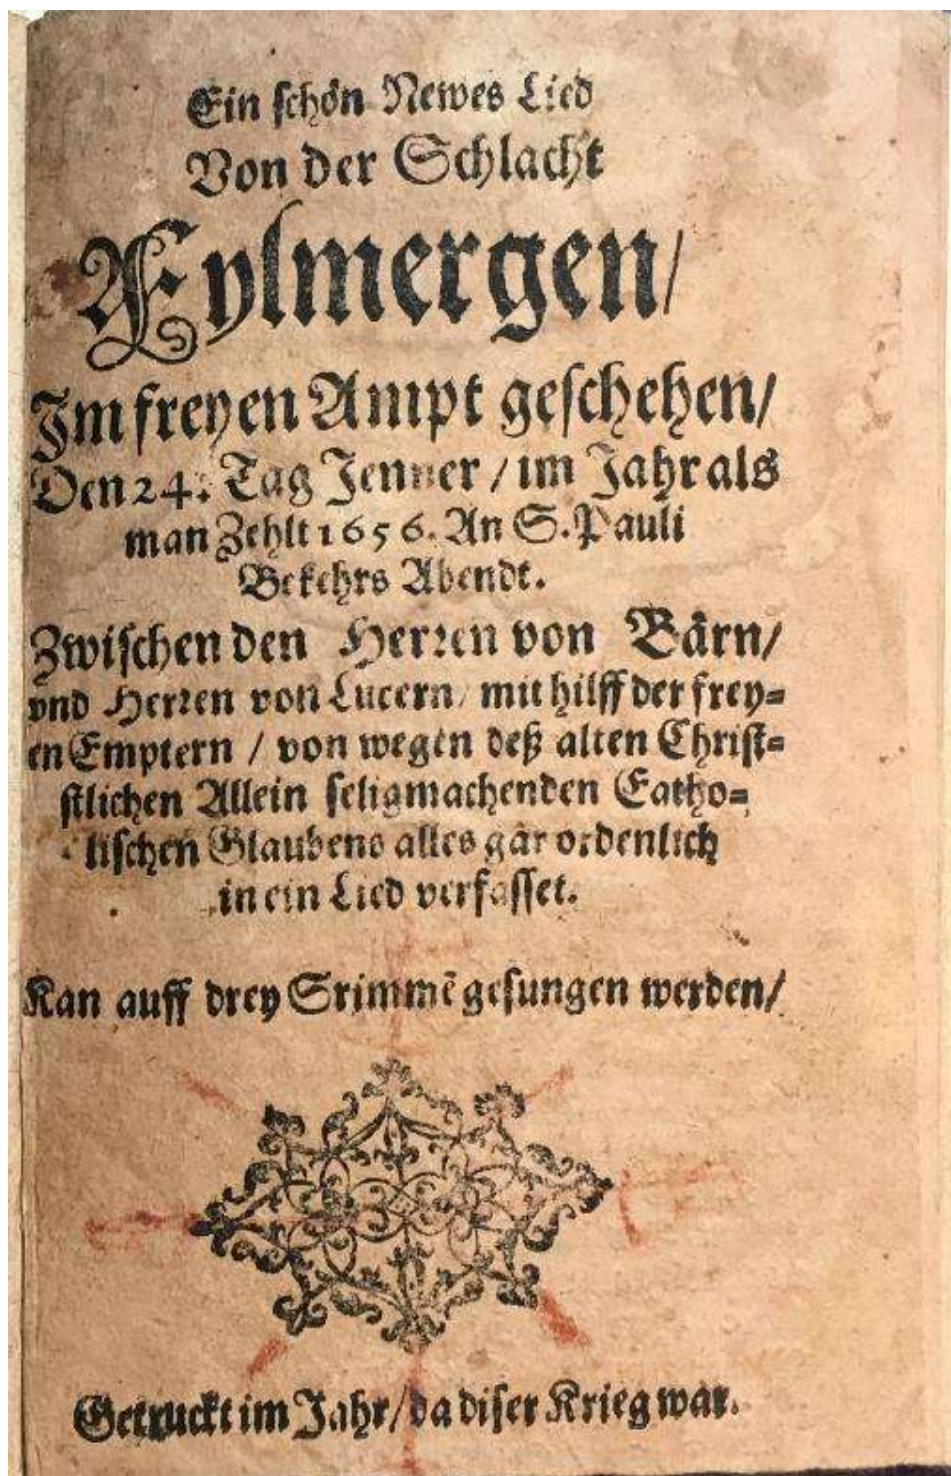 Ein schön Newes Lied
Von der Schlacht
Fylmergen/
Im freyen Ampt geschehen/
Den 24. Tag Jenner / im Jahr als
man Zehlt 1656. An S. Pauli
Bekehrs Abendt.
Zwischen den Herren von Bärn/
vnd Herren von Lucern/ mit hilff der frey-
en Emptern / von wegen deß alten Christ-
stlichen Allein seligmachenden Catho-
lischen Glaubens alles gar ordenlich
in ein Lied verfasset.
Kan auff drey Srimmē gesungen werden/
Getruckt im Jahr/ da diser Krieg war.